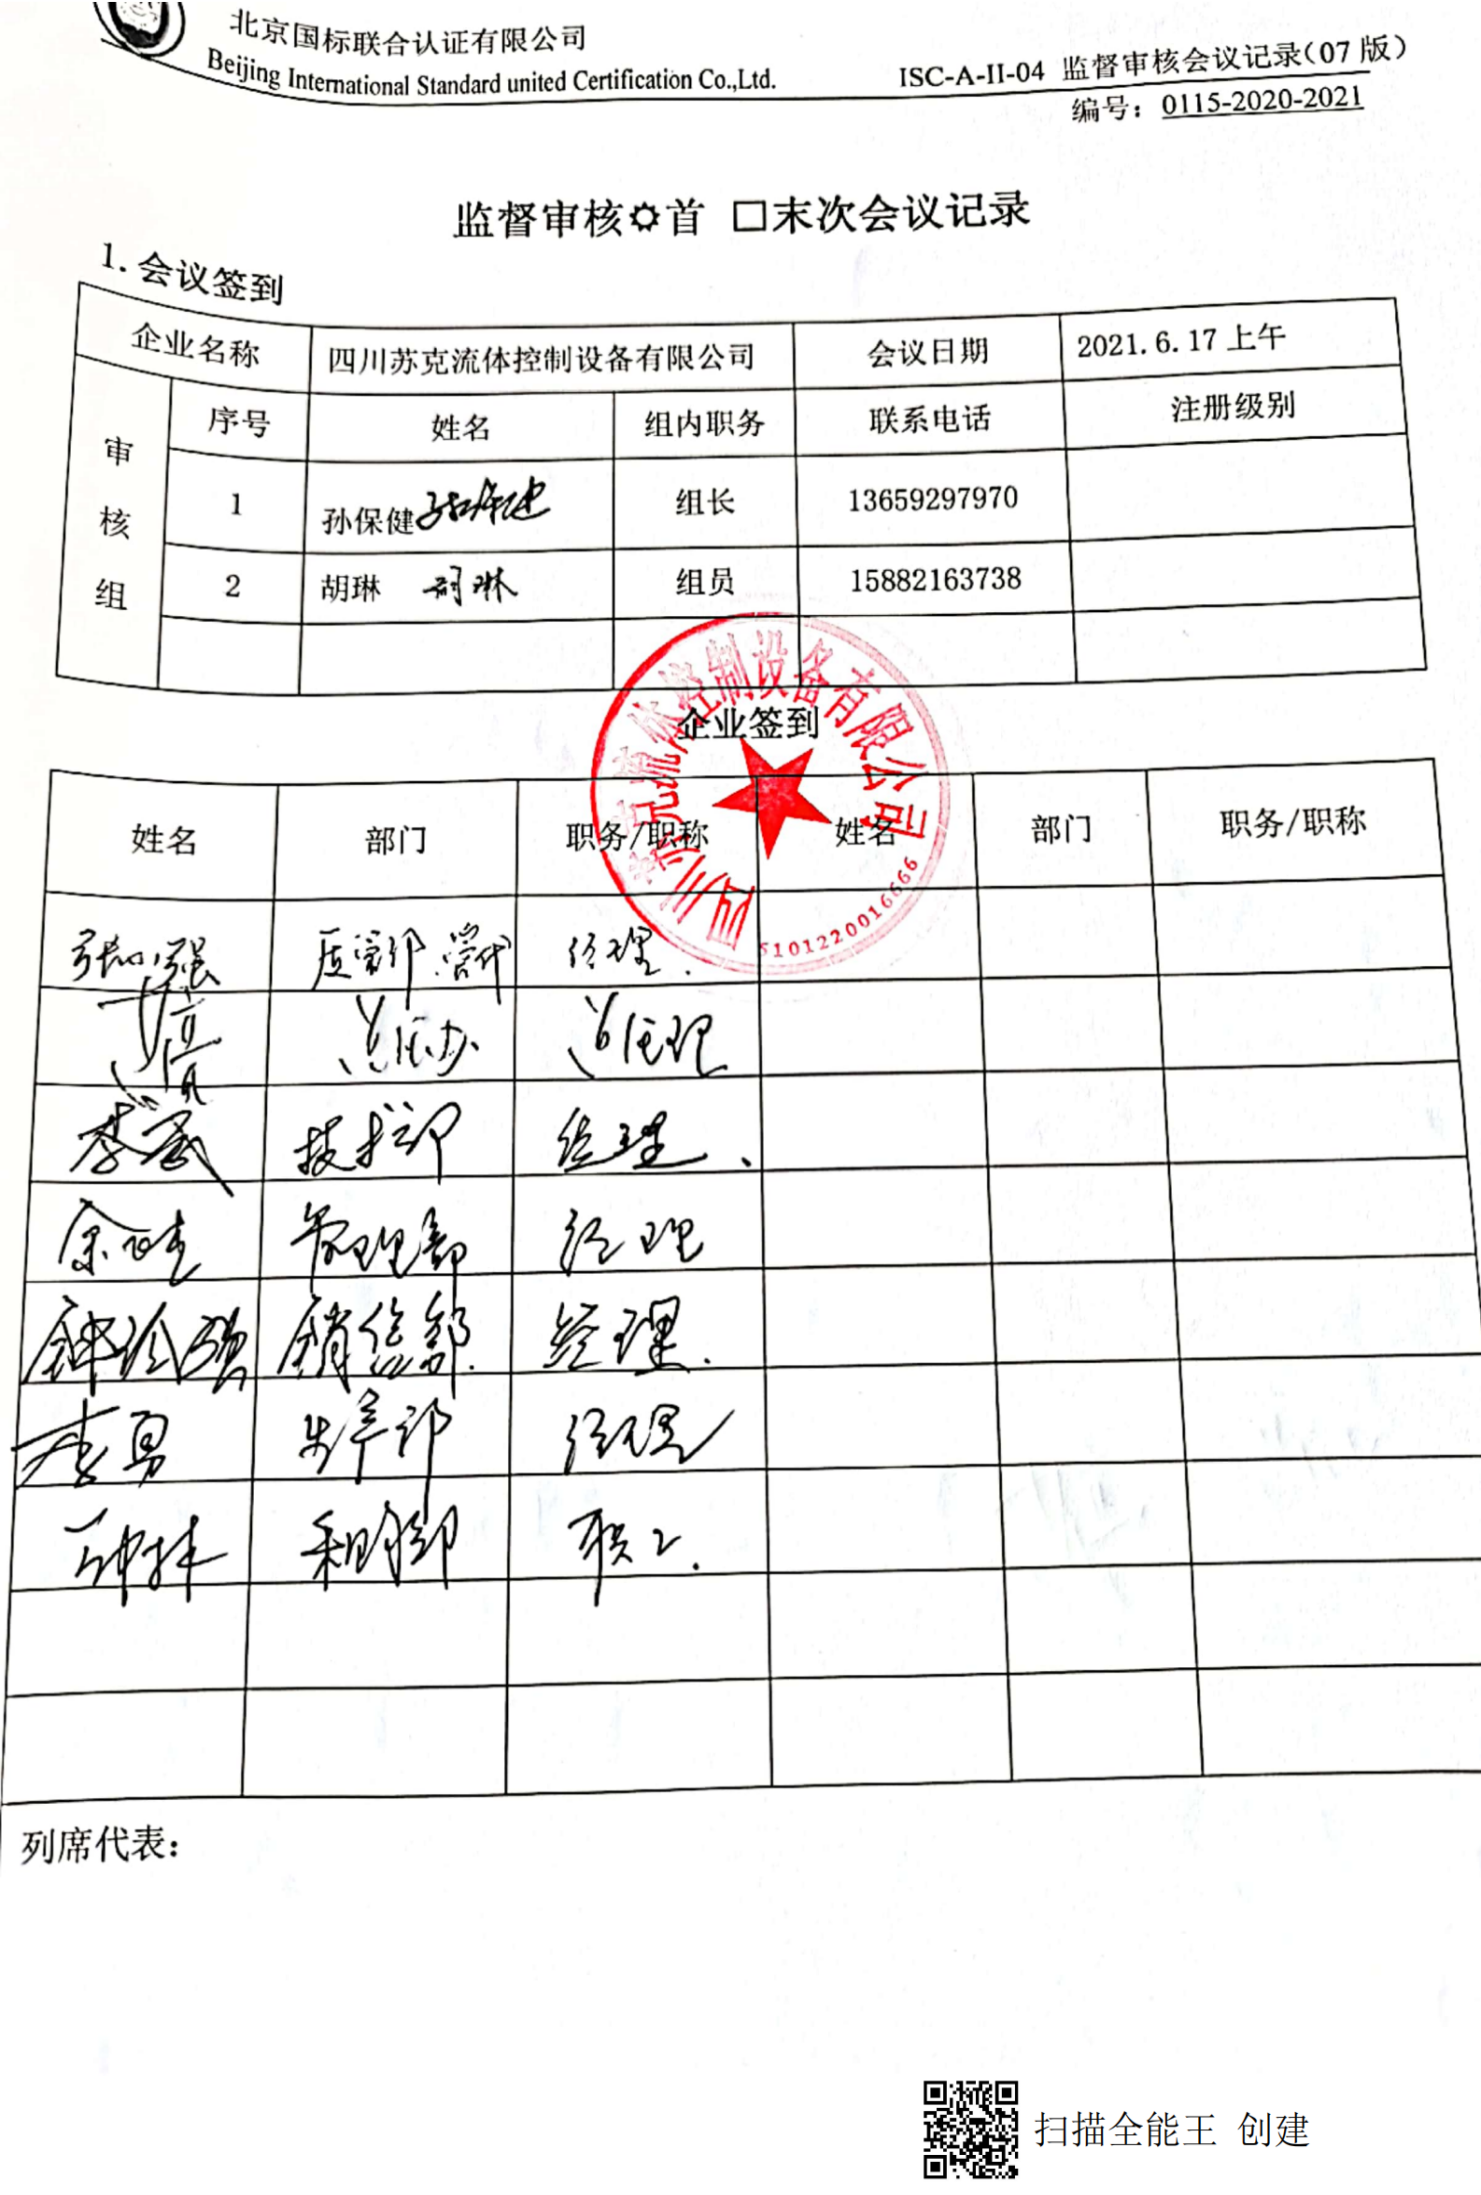 北京国标联合认证有限公司
Beijing International Standard united Certification Co.,Ltd.
ISC-A-II-04 监督审核会议记录(07 版)
编号: 0115-2020-2021
监督审核✡首 □末次会议记录
1. 会议签到
企业名称 四川苏克流体控制设备有限公司 会议日期 2021. 6. 17 上午
审核组 序号 姓名 组内职务 联系电话 注册级别
1 孙保健 孙保健 组长 13659297970
2 胡琳 胡琳 组员 15882163738
四川苏克流体控制设备有限公司
5101220016666
企业签到
姓名 部门 职务/职称 姓名 部门 职务/职称
质管部 管代 经理.
总经办 总经理
技术部 经理.
管理部 经理
销售部. 经理.
李勇 生产部 经理
职工.
列席代表:
扫描全能王 创建